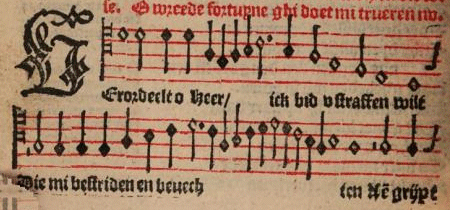 se. O wreede fortuyne ghi doet mi trueren nu.
VErordeelt o Heer/ ick bid v straffen wilt
Die mi bestriden en beuech ten Aē grijpt